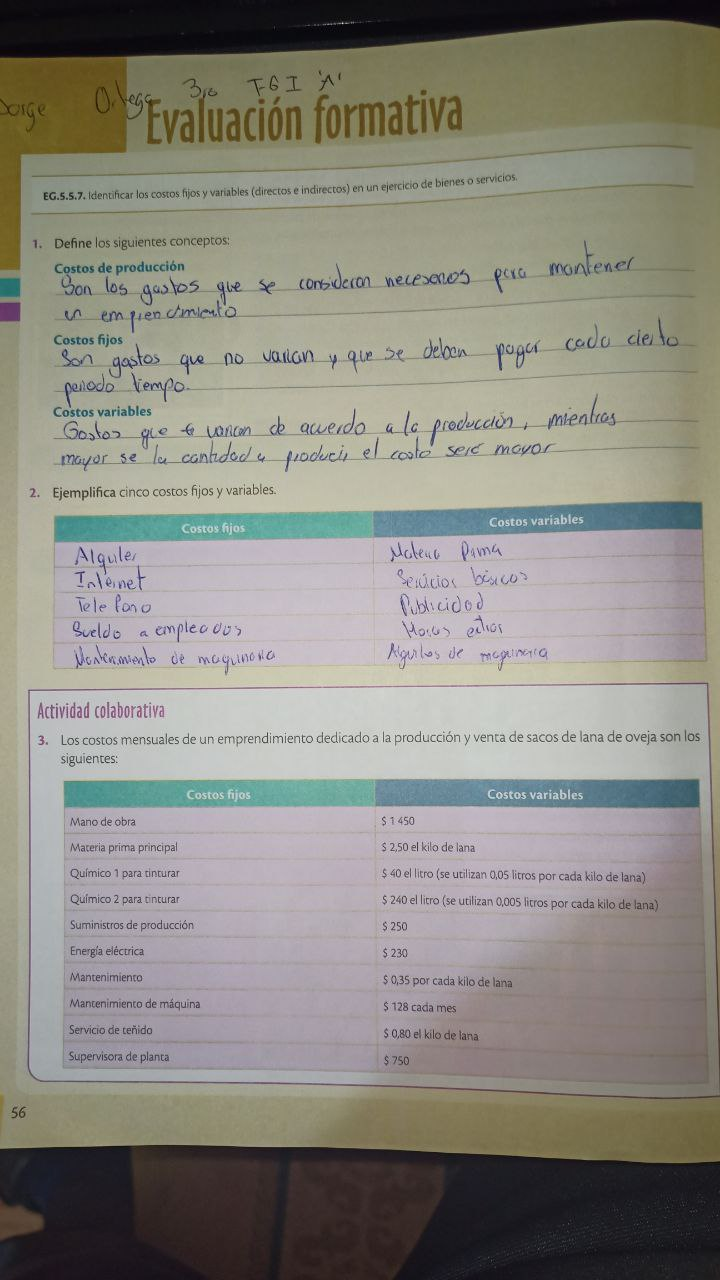 Jorge Ortega 3ro T-G I 'A'
Evaluación formativa
EG.5.5.7. Identificar los costos fijos y variables (directos e indirectos) en un ejercicio de bienes o servicios.
1. Define los siguientes conceptos:
Costos de producción
Son los gastos que se consideran necesarios para mantener
un emprendimiento
Costos fijos
Son gastos que no varian y que se deben pagar cada cierto
periodo tiempo.
Costos variables
Gastos que varian de acuerdo a la producción, mientras
mayor se la cantidad a producir el costo sera mayor
2. Ejemplifica cinco costos fijos y variables.
Costos fijos Costos variables
Alquiler Materia Prima
Internet Servicios básicos
Telefono Publicidad
Sueldo a empleados Horas extras
Mantenimiento de maquinaria Alquiler de maquinaria
Actividad colaborativa
3. Los costos mensuales de un emprendimiento dedicado a la producción y venta de sacos de lana de oveja son los
siguientes:
Costos fijos Costos variables
Mano de obra $ 1 450
Materia prima principal $ 2,50 el kilo de lana
Químico 1 para tinturar $ 40 el litro (se utilizan 0,05 litros por cada kilo de lana)
Químico 2 para tinturar $ 240 el litro (se utilizan 0,005 litros por cada kilo de lana)
Suministros de producción $ 250
Energía eléctrica $ 230
Mantenimiento $ 0,35 por cada kilo de lana
Mantenimiento de máquina $ 128 cada mes
Servicio de teñido $ 0,80 el kilo de lana
Supervisora de planta $ 750
56